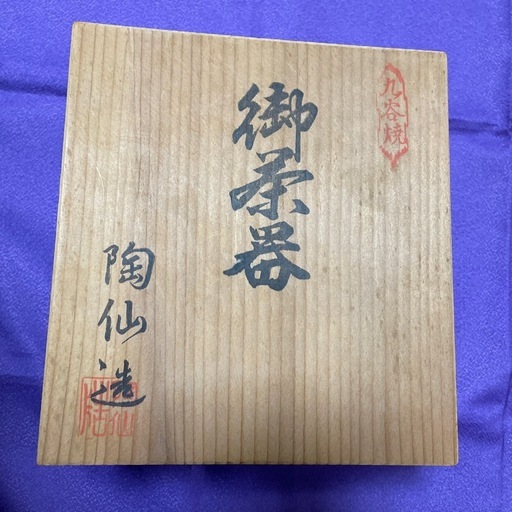 九谷焼
御茶器
陶仙造